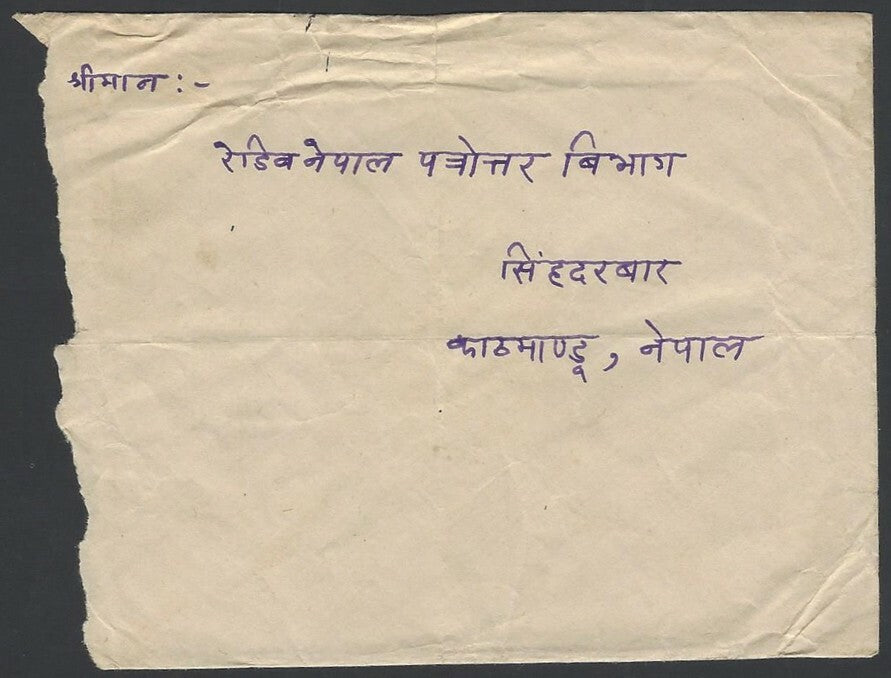 श्रीमान :-
रेडिव नेपाल पत्रोत्तर बिभाग
सिंहदरबार
काठमाण्डू, नेपाल